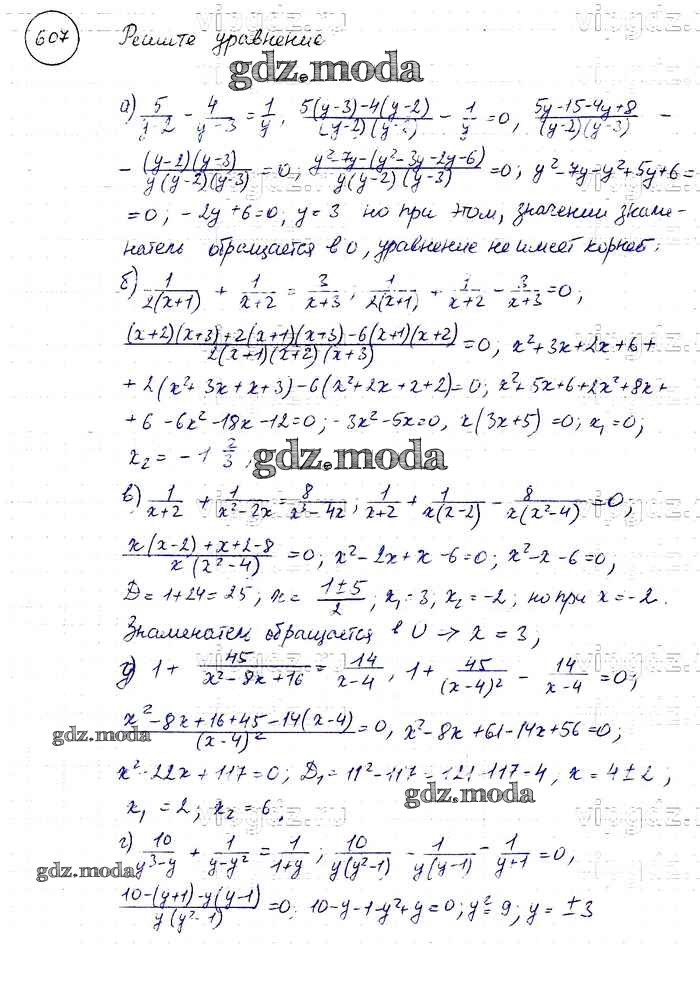 607 Решите уравнение
gdz.moda
а) 5/(y-2) - 4/(y-3) = 1/y, (5(y-3)-4(y-2))/((y-2)(y-3)) - 1/y = 0, (5y-15-4y+8)/((y-2)(y-3)) -
- ((y-2)(y-3))/(y(y-2)(y-3)) = 0; (y²-7y-(y²-3y-2y-6))/(y(y-2)(y-3)) = 0; y²-7y-y²+5y+6=
=0; -2y+6=0; y=3 но при этом, значении знаме-
натель обращается в 0, уравнение не имеет корней;
б) 1/(2(x+1)) + 1/(x+2) = 3/(x+3); 1/(2(x+1)) + 1/(x+2) - 3/(x+3) = 0;
((x+2)(x+3)+2(x+1)(x+3)-6(x+1)(x+2))/(2(x+1)(x+2)(x+3)) = 0; x²+3x+2x+6+
+2(x²+3x+x+3)-6(x²+2x+x+2)=0; x²+5x+6+2x²+8x+
+6-6x²-18x-12=0; -3x²-5x=0, x(3x+5)=0; x₁=0;
x₂ = -1 2/3;
gdz.moda
в) 1/(x+2) + 1/(x²-2x) = 8/(x³-4x); 1/(x+2) + 1/(x(x-2)) - 8/(x(x²-4)) = 0,
(x(x-2)+x+2-8)/(x(x²-4)) = 0; x²-2x+x-6=0; x²-x-6=0,
D=1+24=25; x = (1±5)/2; x₁=3; x₂=-2; но при x=-2.
Знаменател обращается в 0 → x=3;
1 + 45/(x²-8x+16) = 14/(x-4), 1 + 45/(x-4)² - 14/(x-4) = 0;
(x²-8x+16+45-14(x-4))/(x-4)² = 0, x²-8x+61-14x+56=0;
gdz.moda
x²-22x+117=0; D₁=11²-117=121-117=4, x=4±2;
gdz.moda
x₁=2; x₂=6,
г) 10/(y³-y) + 1/(y-y²) = 1/(1+y); 10/(y(y²-1)) - 1/(y(y-1)) - 1/(y+1) = 0,
gdz.moda
(10-(y+1)-y(y-1))/(y(y²-1)) = 0; 10-y-1-y²+y=0; y²=9; y=±3